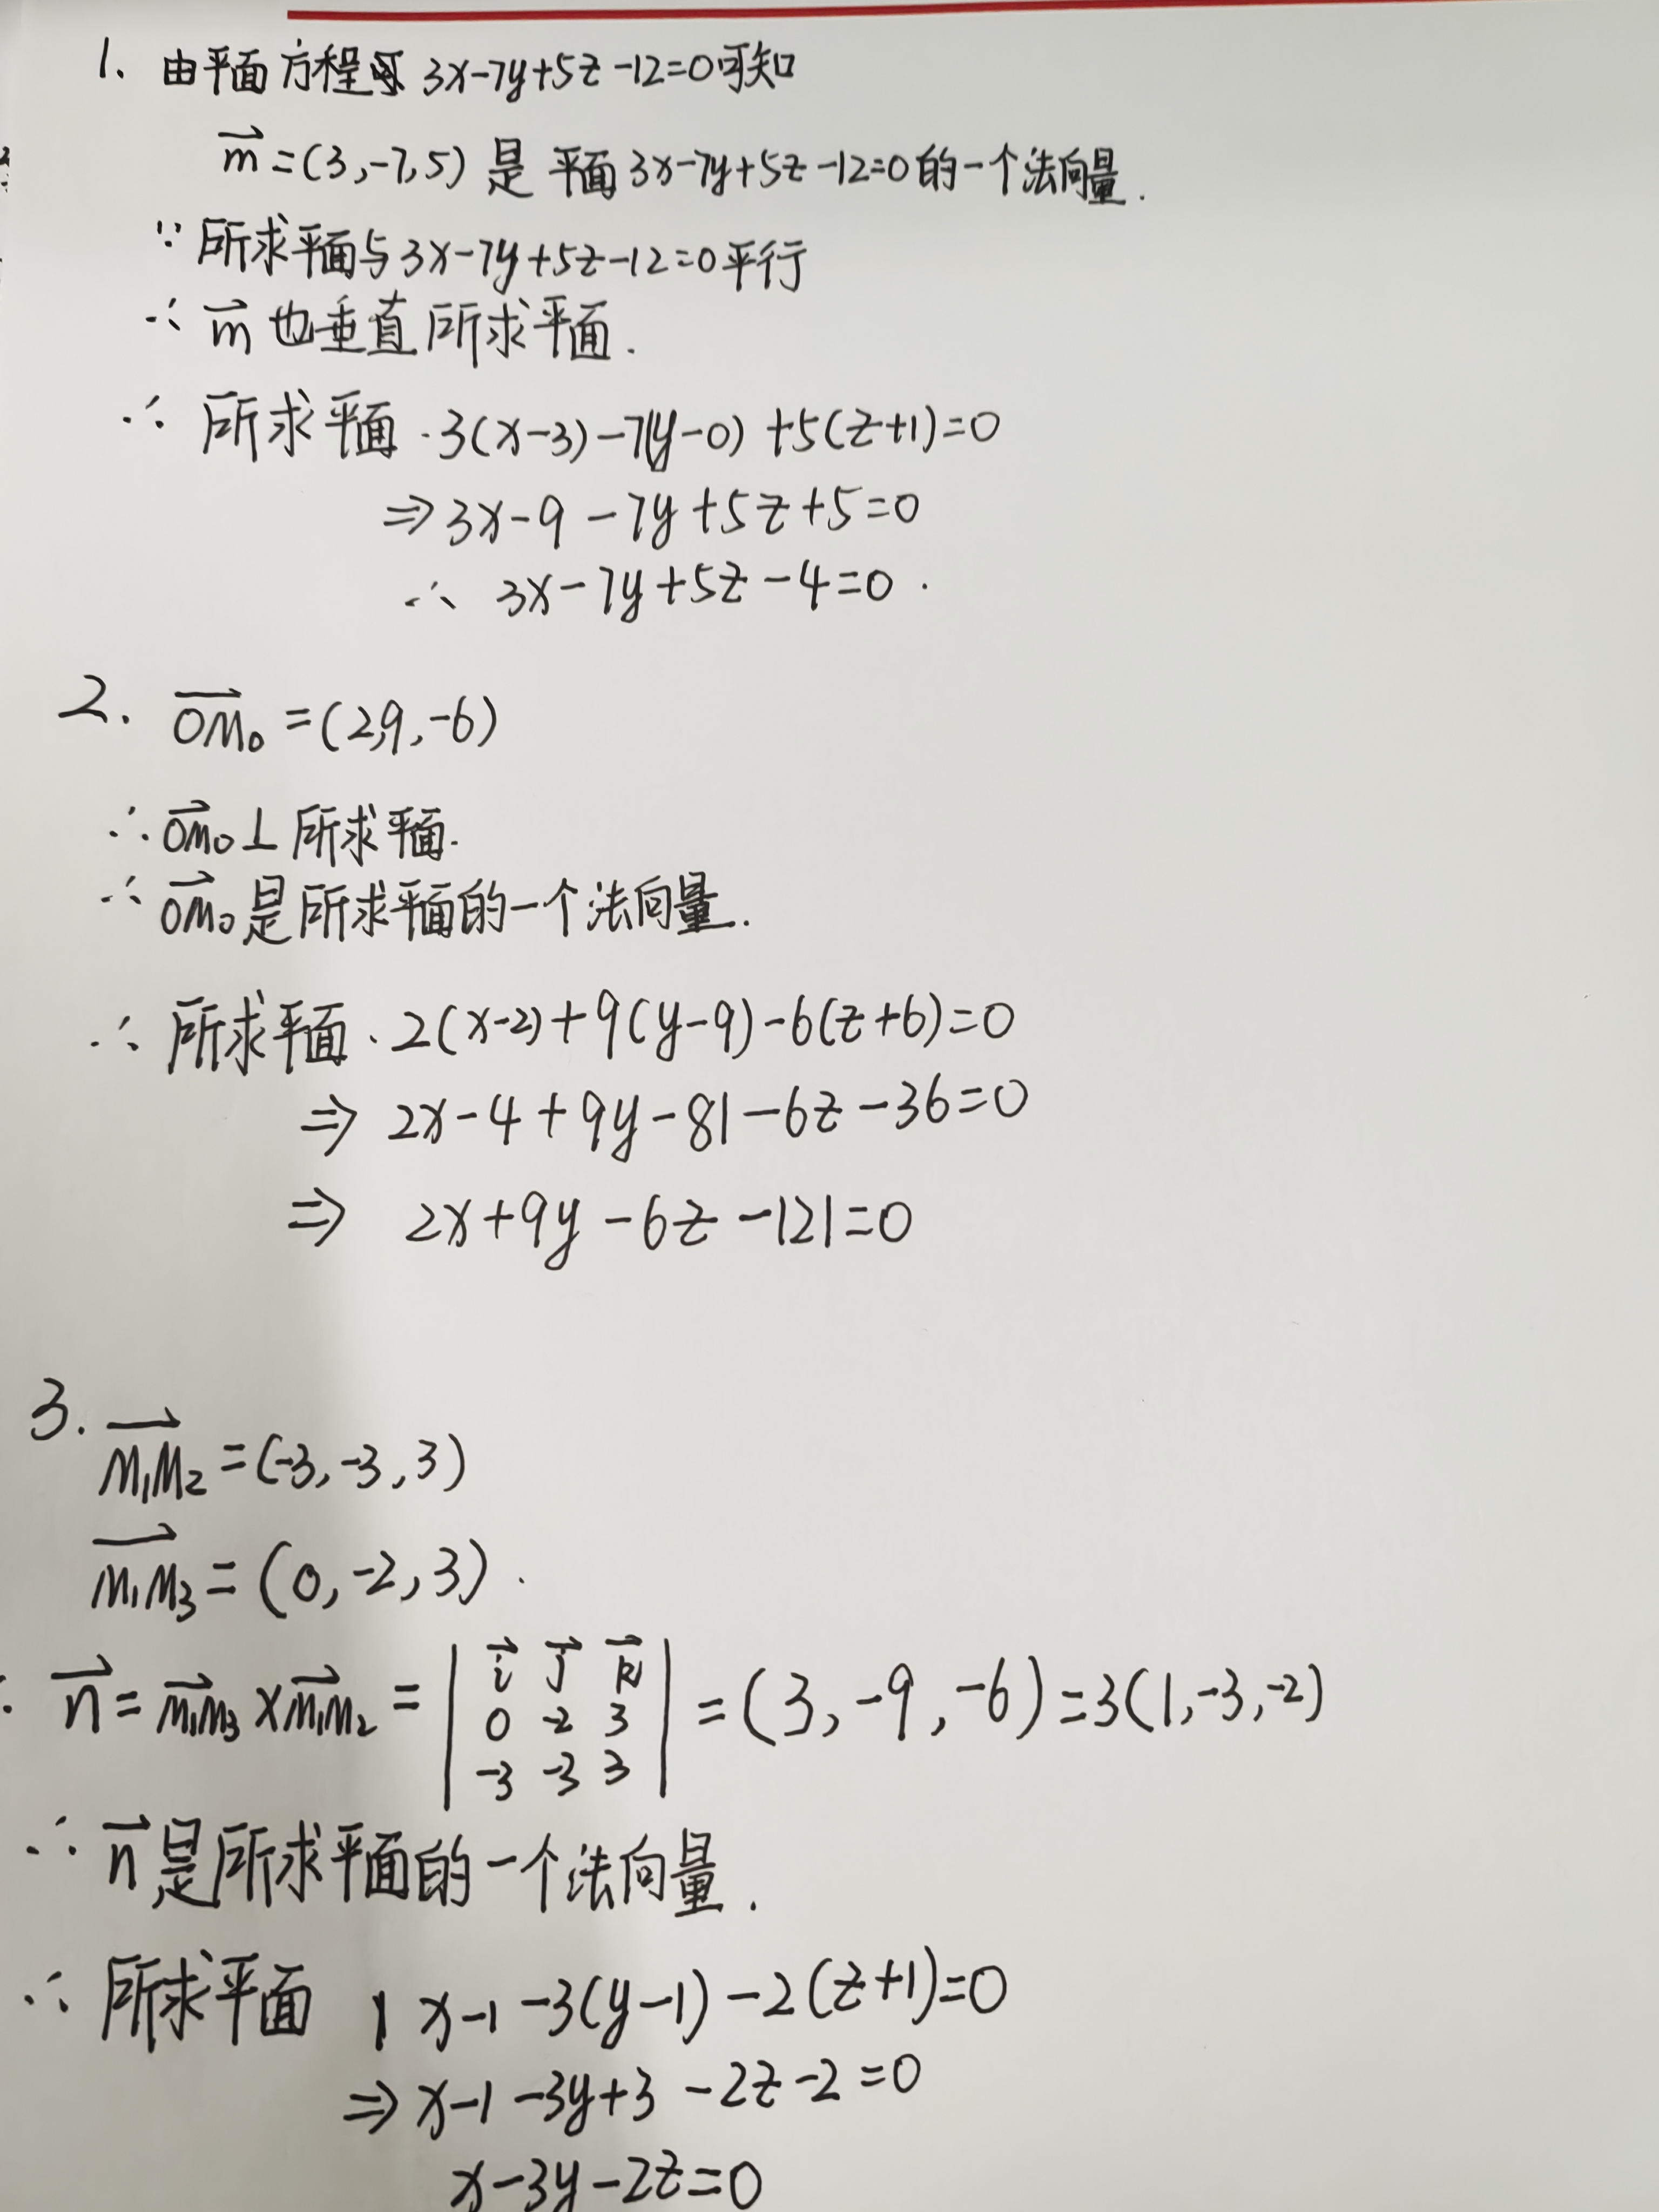 1. 由平面方程 3x-7y+5z-12=0可知
m⃗=(3,-7,5) 是 平面3x-7y+5z-12=0的一个法向量.
∵ 所求平面与3x-7y+5z-12=0平行
∴ m⃗ 也垂直所求平面.
∴ 所求平面 . 3(x-3)-7(y-0)+5(z+1)=0
⇒ 3x-9-7y+5z+5=0
∴ 3x-7y+5z-4=0.
2. OM₀⃗ =(2,9,-6)
∴ OM₀⃗ ⊥ 所求平面.
∴ OM₀⃗ 是所求平面的一个法向量.
∴ 所求平面. 2(x-2)+9(y-9)-6(z+6)=0
⇒ 2x-4+9y-81-6z-36=0
⇒ 2x+9y-6z-121=0
3.
M₁M₂⃗ =(-3,-3,3)
M₁M₃⃗ =(0,-2,3).
n⃗ = M₁M₃⃗ × M₁M₂⃗ = | i⃗ j⃗ k⃗ |
| 0 -2 3 | =(3,-9,-6)=3(1,-3,-2)
| -3 -3 3 |
∴ n⃗ 是所求平面的一个法向量.
∴ 所求平面 x-1-3(y-1)-2(z+1)=0
⇒ x-1-3y+3-2z-2=0
x-3y-2z=0